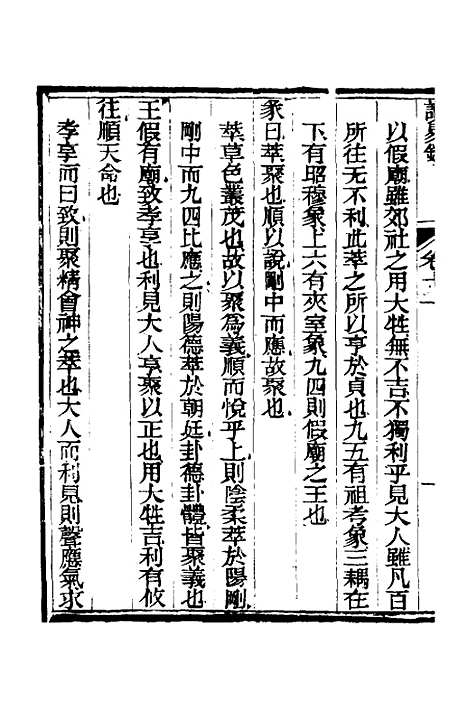 讀易錄
卷十二
一
以假廟雖郊社之用大牲無不吉不獨利乎見大人雖凡百
所往无不利此萃之所以亨於貞也九五有祖考象三耦在
下有昭穆象上六有夾室象九四則假廟之王也
彖曰萃聚也順以說剛中而應故聚也
萃草色叢茂也故以聚爲義順而悅乎上則陰柔萃於陽剛
剛中而九四比應之則陽德萃於朝廷卦德卦體皆聚義也
王假有廟致孝享也利見大人亨聚以正也用大牲吉利有攸
往順天命也
孝享而曰致則聚精會神之萃也大人而利見則聲應氣求